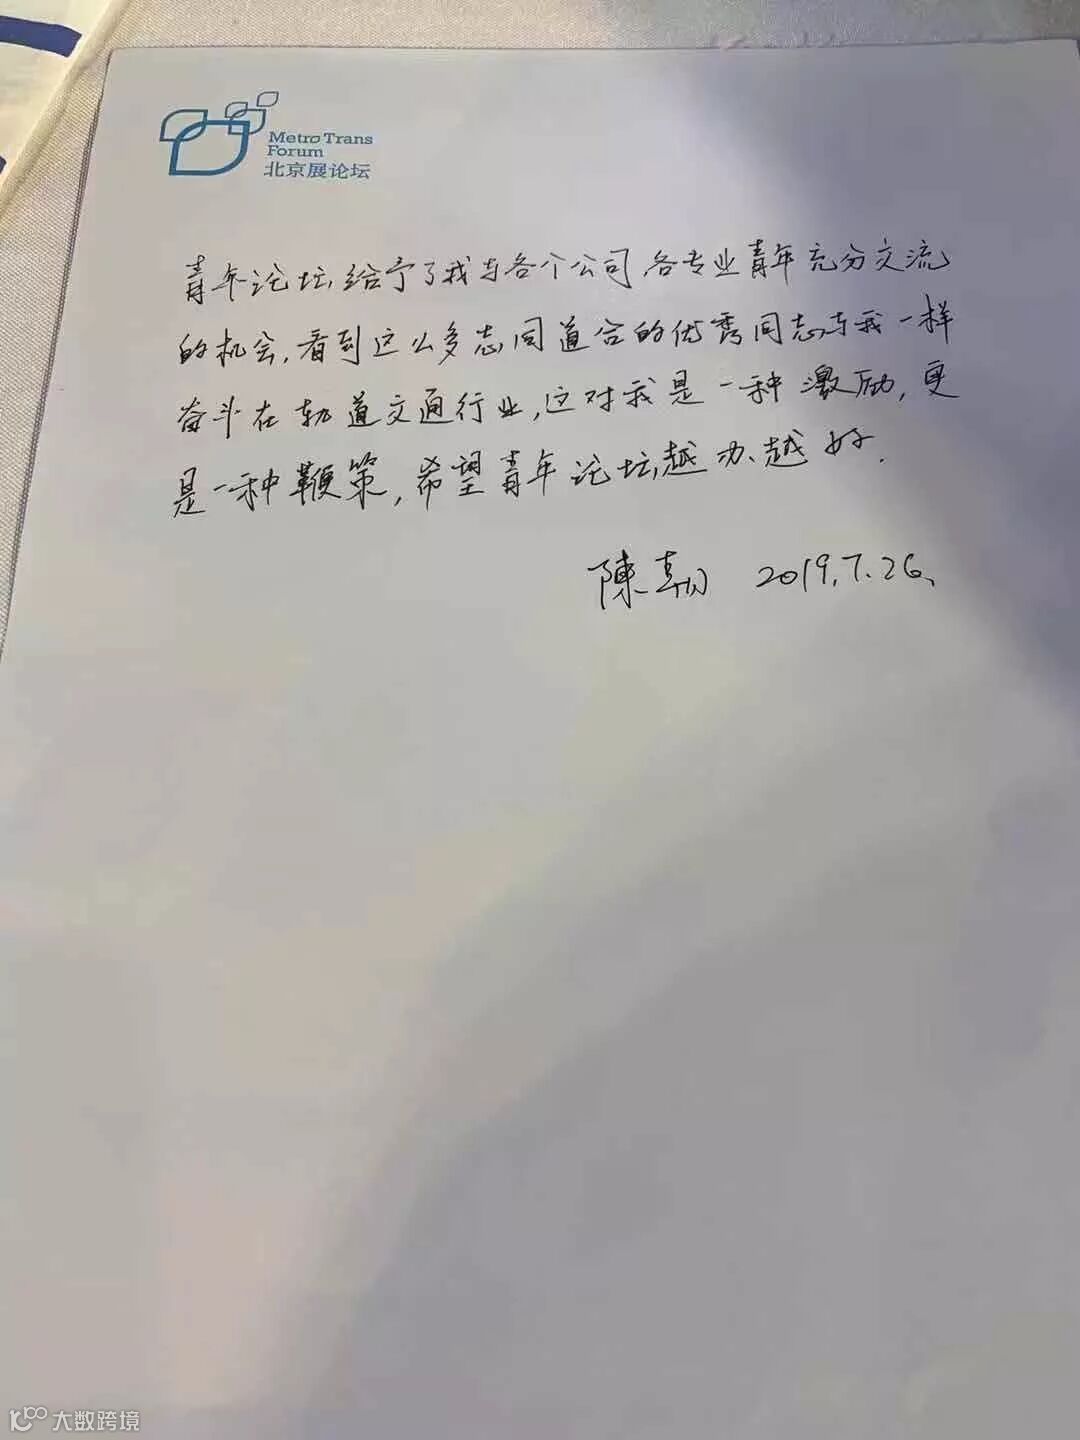 Metro Trans
Forum
北京展论坛
青年论坛,给予了我与各个公司,各专业青年充分交流
的机会,看到这么多志同道合的优秀同志,与我一样
奋斗在轨道交通行业,这对我是一种激励,更
是一种鞭策,希望青年论坛,越办、越好.
陳 2019.7.26、
大数跨境